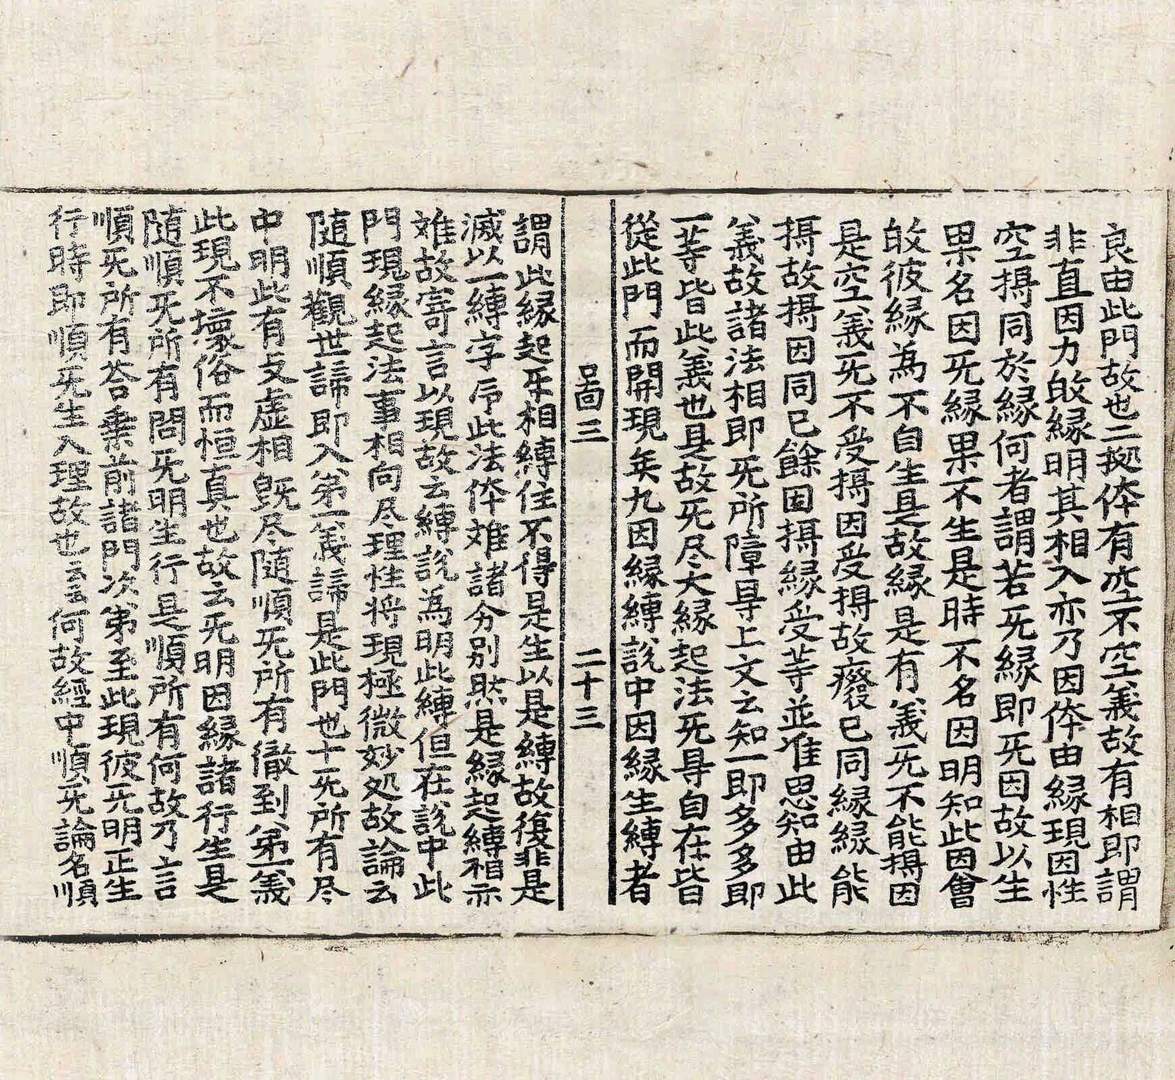 良由此門故也二擬体有空不空義故有相即謂
非直因力故縁明其相入亦乃因体由縁現因性
空㩲同於縁何者謂若旡縁即旡因故以生
果名因旡縁果不生是時不名因明知此因會
故彼縁為不自生是故縁是有義旡不能㩲因
是空義旡不受㩲因受㩲故癈已同縁縁能
㩲故㩲因同已餘因㩲縁受等並准思知由此
義故諸法相即旡所障㝵上文云知一即多多即
一等皆此義也是故旡尽大縁起法旡㝵自在皆
從此門而開現矣九因縁縛說中因縁生縛者
啚三 二十三
謂此縁起互相縛住不得是生以是縛故復非是
滅以一縛字𭅺此法体難諸分別然是縁起縛相亦
难故寄言以現故云縛說為明此縛但在說中此
門現縁起法事相向尽理性将現極微妙処故論云
随順觀世諦即入苐一義諦是此門也十旡所有尽
中明此有支虛相旣尽随順旡所有徹到苐一義
此現不壞俗而恒真也故云旡明因縁諸行生是
随順旡所有問旡明生行是順所有何故乃言
順旡所有荅乗前諸門次苐至此現彼旡明正生
行時即順旡生入理故也云何故經中順旡論名順